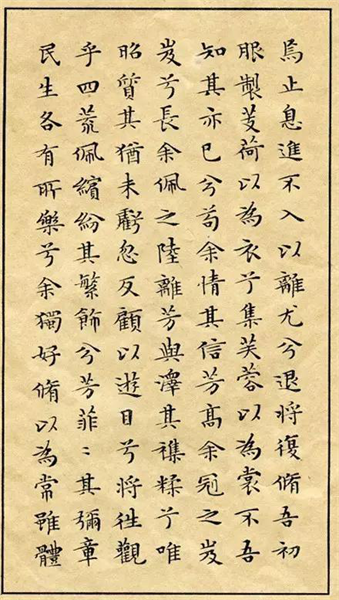 焉止息進不入以離尤兮退將復脩吾初
服製芰荷以為衣兮集芙蓉以為裳不吾
知其亦已兮苟余情其信芳髙余冠之岌
岌兮長余佩之陸離芳與澤其襍糅兮唯
昭質其猶未虧忽反顧以遊目兮將徃觀
乎四荒佩繽紛其繁飾兮芳菲〻其彌章
民生各有所樂兮余獨好脩以為常雖體